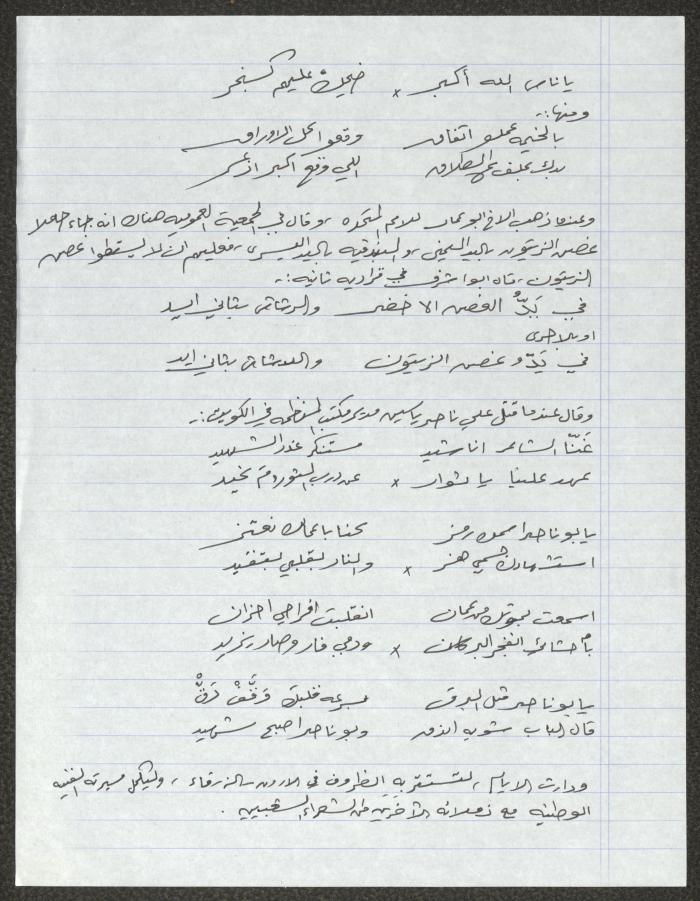 يا ناس الله أكبر × ضحك عليهم كسنجر
ومنها:-
بالخيمه عملو اتفاق وقعو الاوراق
بدك يحلف الطلاق اللي وقع أكبر ازعر
وعندما ذهب الاخ ابو عمار للامم المتحده، وقال في الجمعية العموميه هناك انه جاء حاملا
غصن الزيتون باليد اليمنى، والبندقيه باليد اليسرى، فعليهم ان لا يسقطوا غصن
الزيتون، قاه ابو اشرف في قراديه ثانيه:-
في يَدُّ الغصن الاخضر والرشاش بثاني ايد
او بالاحرى
في يَدّو غصن الزيتون والرشاش بثاني ايد
وقال عندما قتل علي ناصر ياسين مدير مكتب المنظمه في الكويت:-
غَنّا الشاعر اناشيد مستنكر غدر الشهيد
عهد علينا يا ثوار × عن درب الثوره ما نحيد
يا بو ناصر اسمك رمز نحنا باعمالك نعتز
استشهادك جسمي هز × والنار بقلبي بتقيد
اسمعت بموتك من عمان انقلبت افراحي احزان
بأحشائي انفجر البركان × ودمي فار وصار يزيد
يا بو ناصر مثل البرق بسرعه قلبك وَقَّفْ دَقّْ
قال الباب شوبه اندق وبو ناصر اصبح شهيد
ودارت الايام، لتستقر به الظروف في الاردن بالزرقاء، وليكمل مسيرته الفنيه
الوطنيه مع زملائه الآخرين من الشعراء الشعبيين.